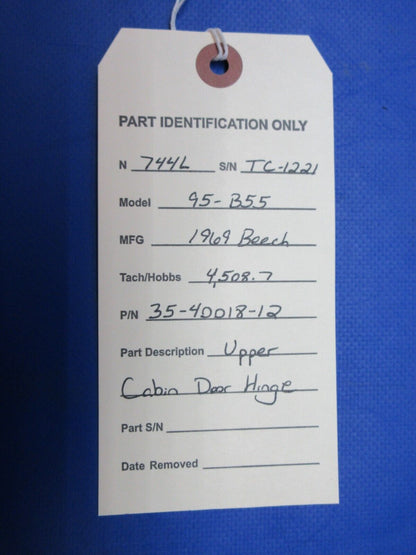 PART IDENTIFICATION ONLY
N 744L S/N TC-1221
Model 95-B55
MFG 1969 Beech
Tach/Hobbs 4,508.7
P/N 35-40018-12
Part Description Upper
Cabin Door Hinge
Part S/N
Date Removed